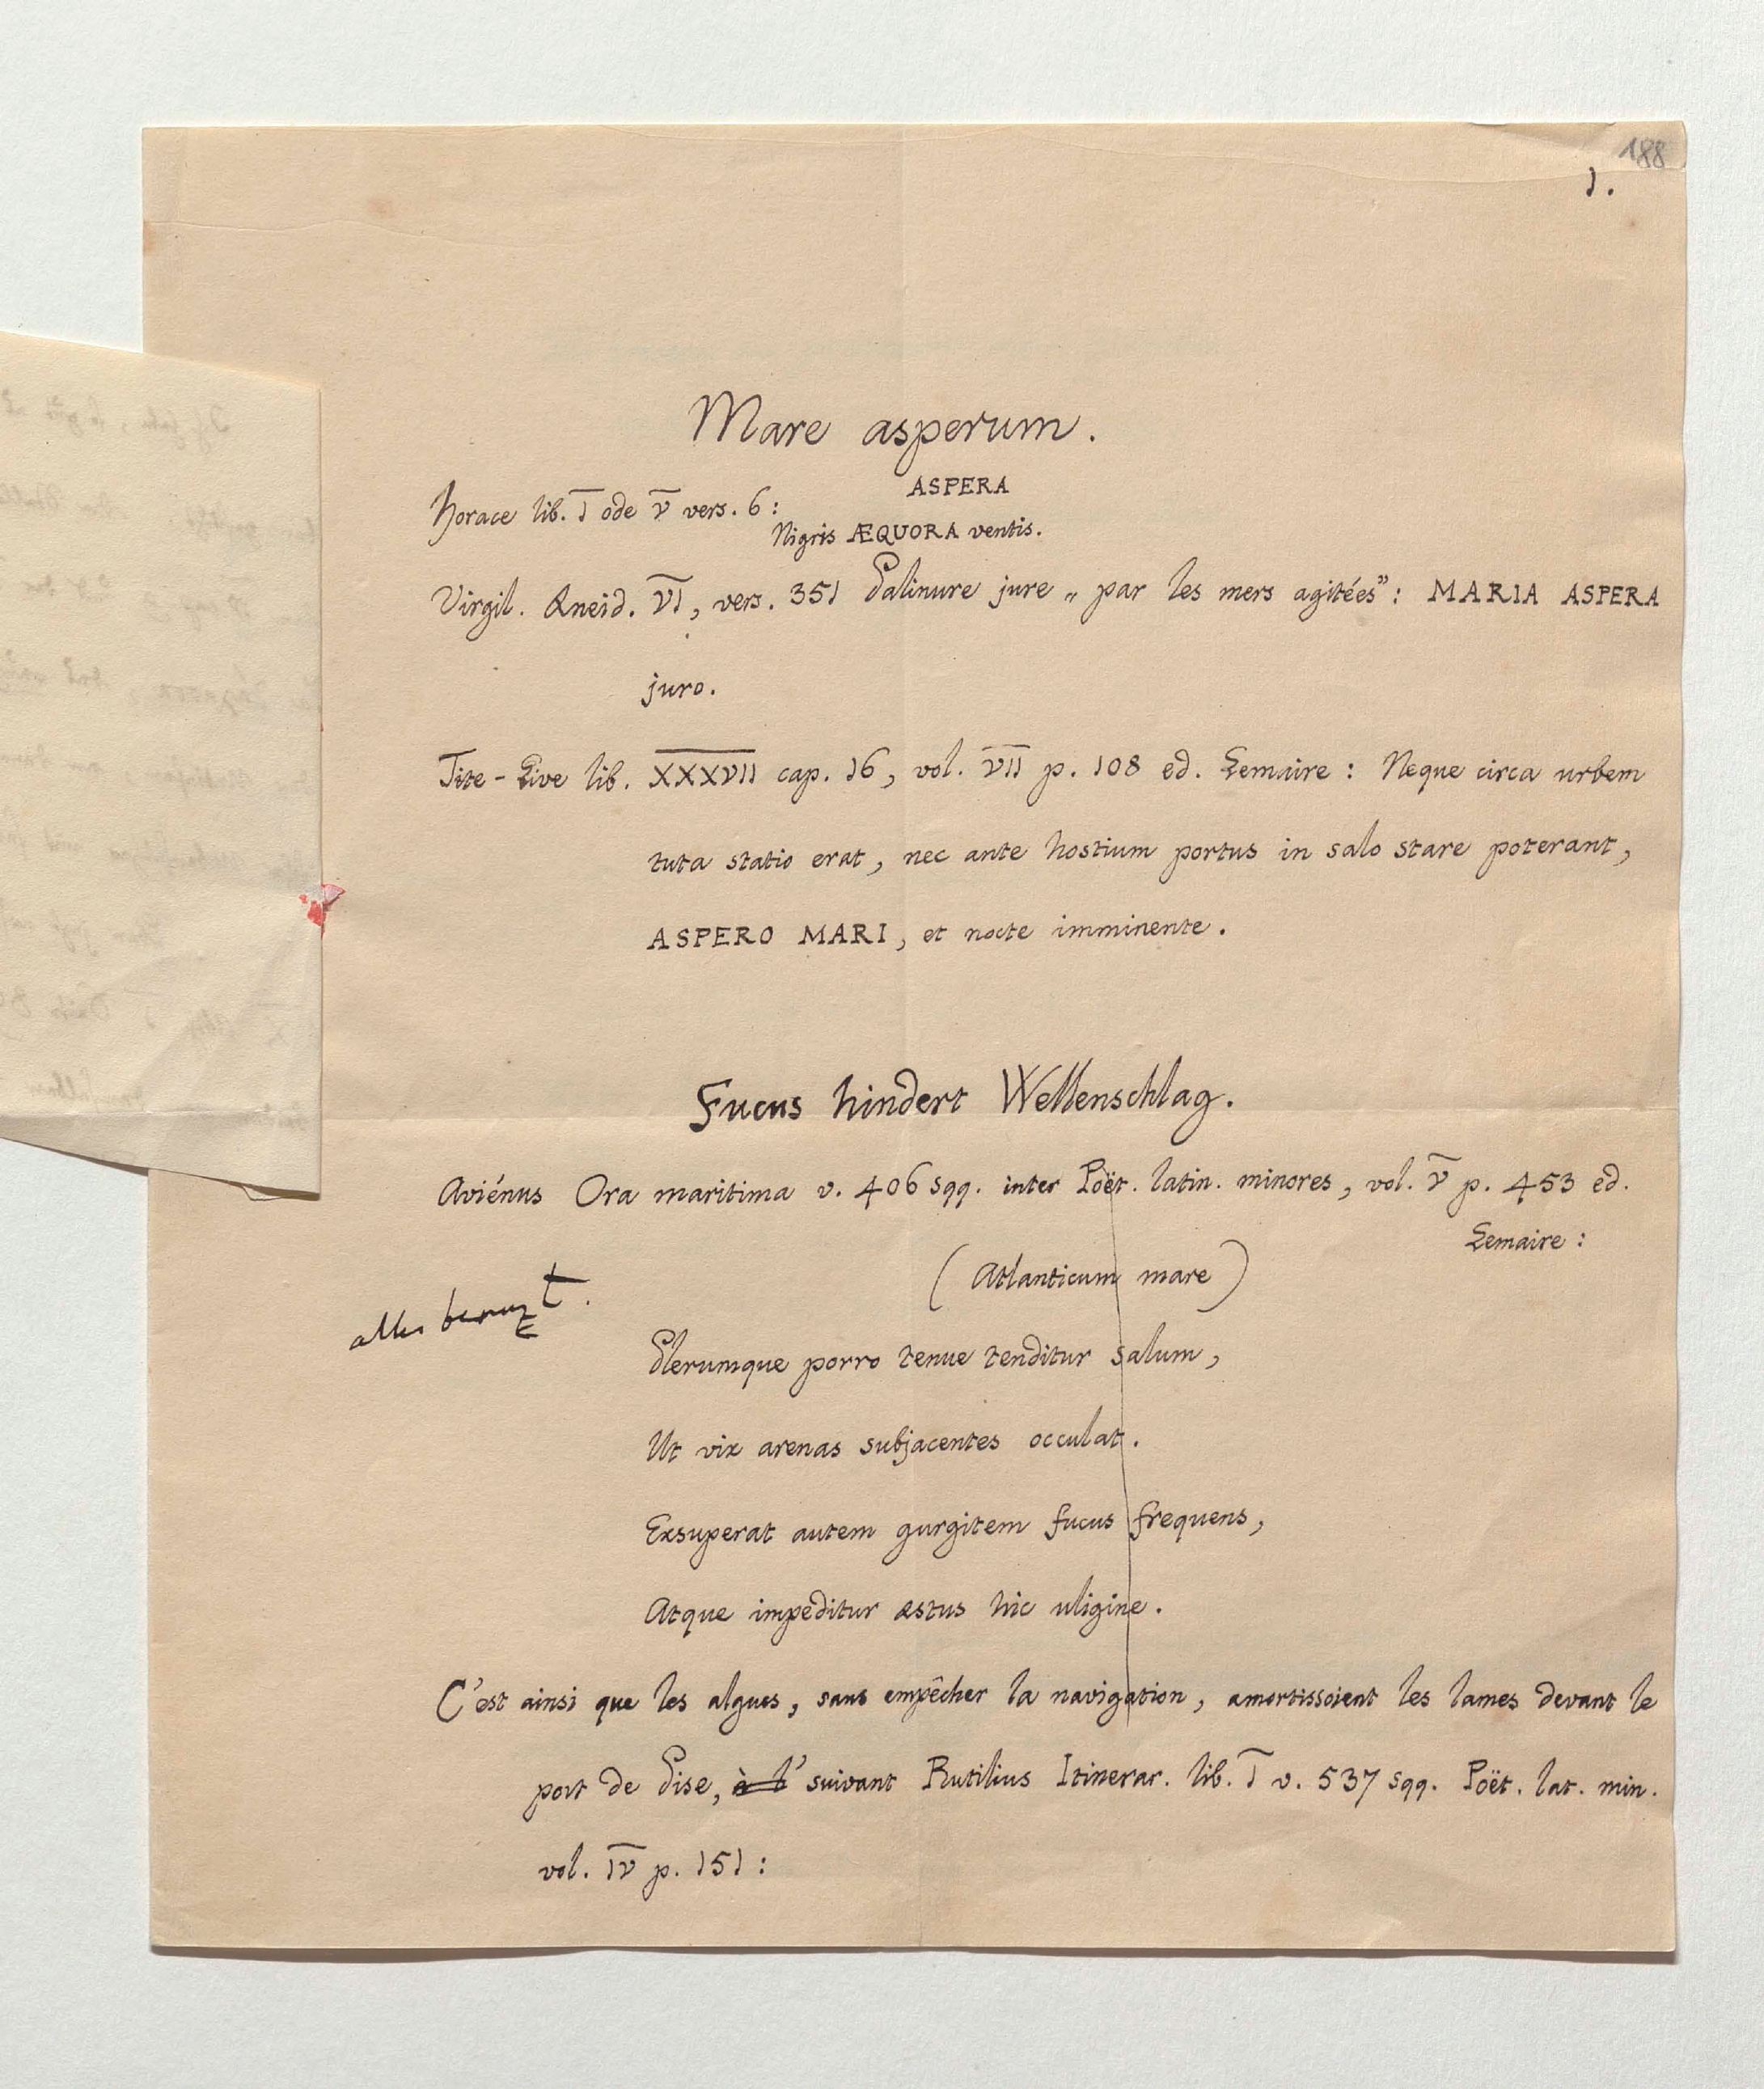 188
1.
Mare asperum.
Horace lib. I ode V vers. 6:
ASPERA
Nigris ÆQUORA ventis.
Virgil. Æneid. VI, vers. 351 Palinure jure „par les mers agitées”: MARIA ASPERA
juro.
Tite-Live lib. XXXVII cap. 16, vol. VII p. 108 ed. Lemaire: Neque circa urbem
tuta statio erat, nec ante hostium portus in salo stare poterant,
ASPERO MARI, et nocte imminente.
Fucus hindert Wellenschlag.
Aviénus Ora maritima v. 406 sqq. inter Poët. latin. minores, vol. V p. 453 ed.
Lemaire:
(Atlanticum mare)
alles benuzt.
Plerumque porro tenue tenditur salum,
Ut vix arenas subjacentes occulat.
Exsuperat autem gurgitem fucus frequens,
Atque impeditur æstus hic uligine.
C'est ainsi que les algues, sans empêcher la navigation, amortissoient les lames devant le
port de Pise, à l' suivant Rutilius Itinerar. lib. I v. 537 sqq. Poët. lat. min.
vol. IV p. 151: